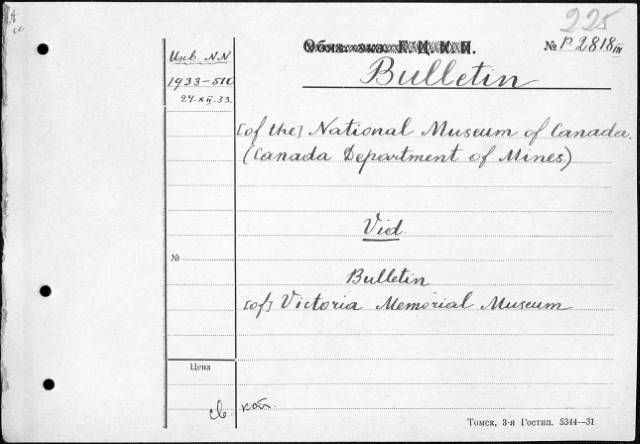 225
Инв. NN
Обяз. экз. Г.Ц.К.П.
№ P-2818 IV
1933-510
Bulletin
27.XII.33.
[of the] National Museum of Canada.
(Canada Department of Mines)
Vid.
№
Bulletin
[of] Victoria Memorial Museum
Цена
св. кат.
Томск, 3-я Гостип. 5344—31